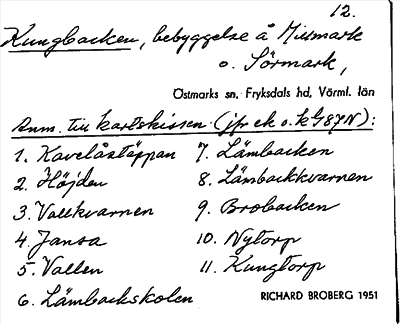 12.
Kungbacken, bebyggelse å Mitmark
o. Sörmark,
Östmarks sn. Fryksdals hd, Värml. län
Anm. till kartskissen (jfr ek o. k G87N):
1. Kavelåstäppan 7. Lämbacken
2. Höjden 8. Lämbackkvarnen
3. Vallkvarnen 9. Brobacken
4. Jansa 10. Nytorp
5. Vallen 11. Kungtorp
6. Lämbackskolen RICHARD BROBERG 1951